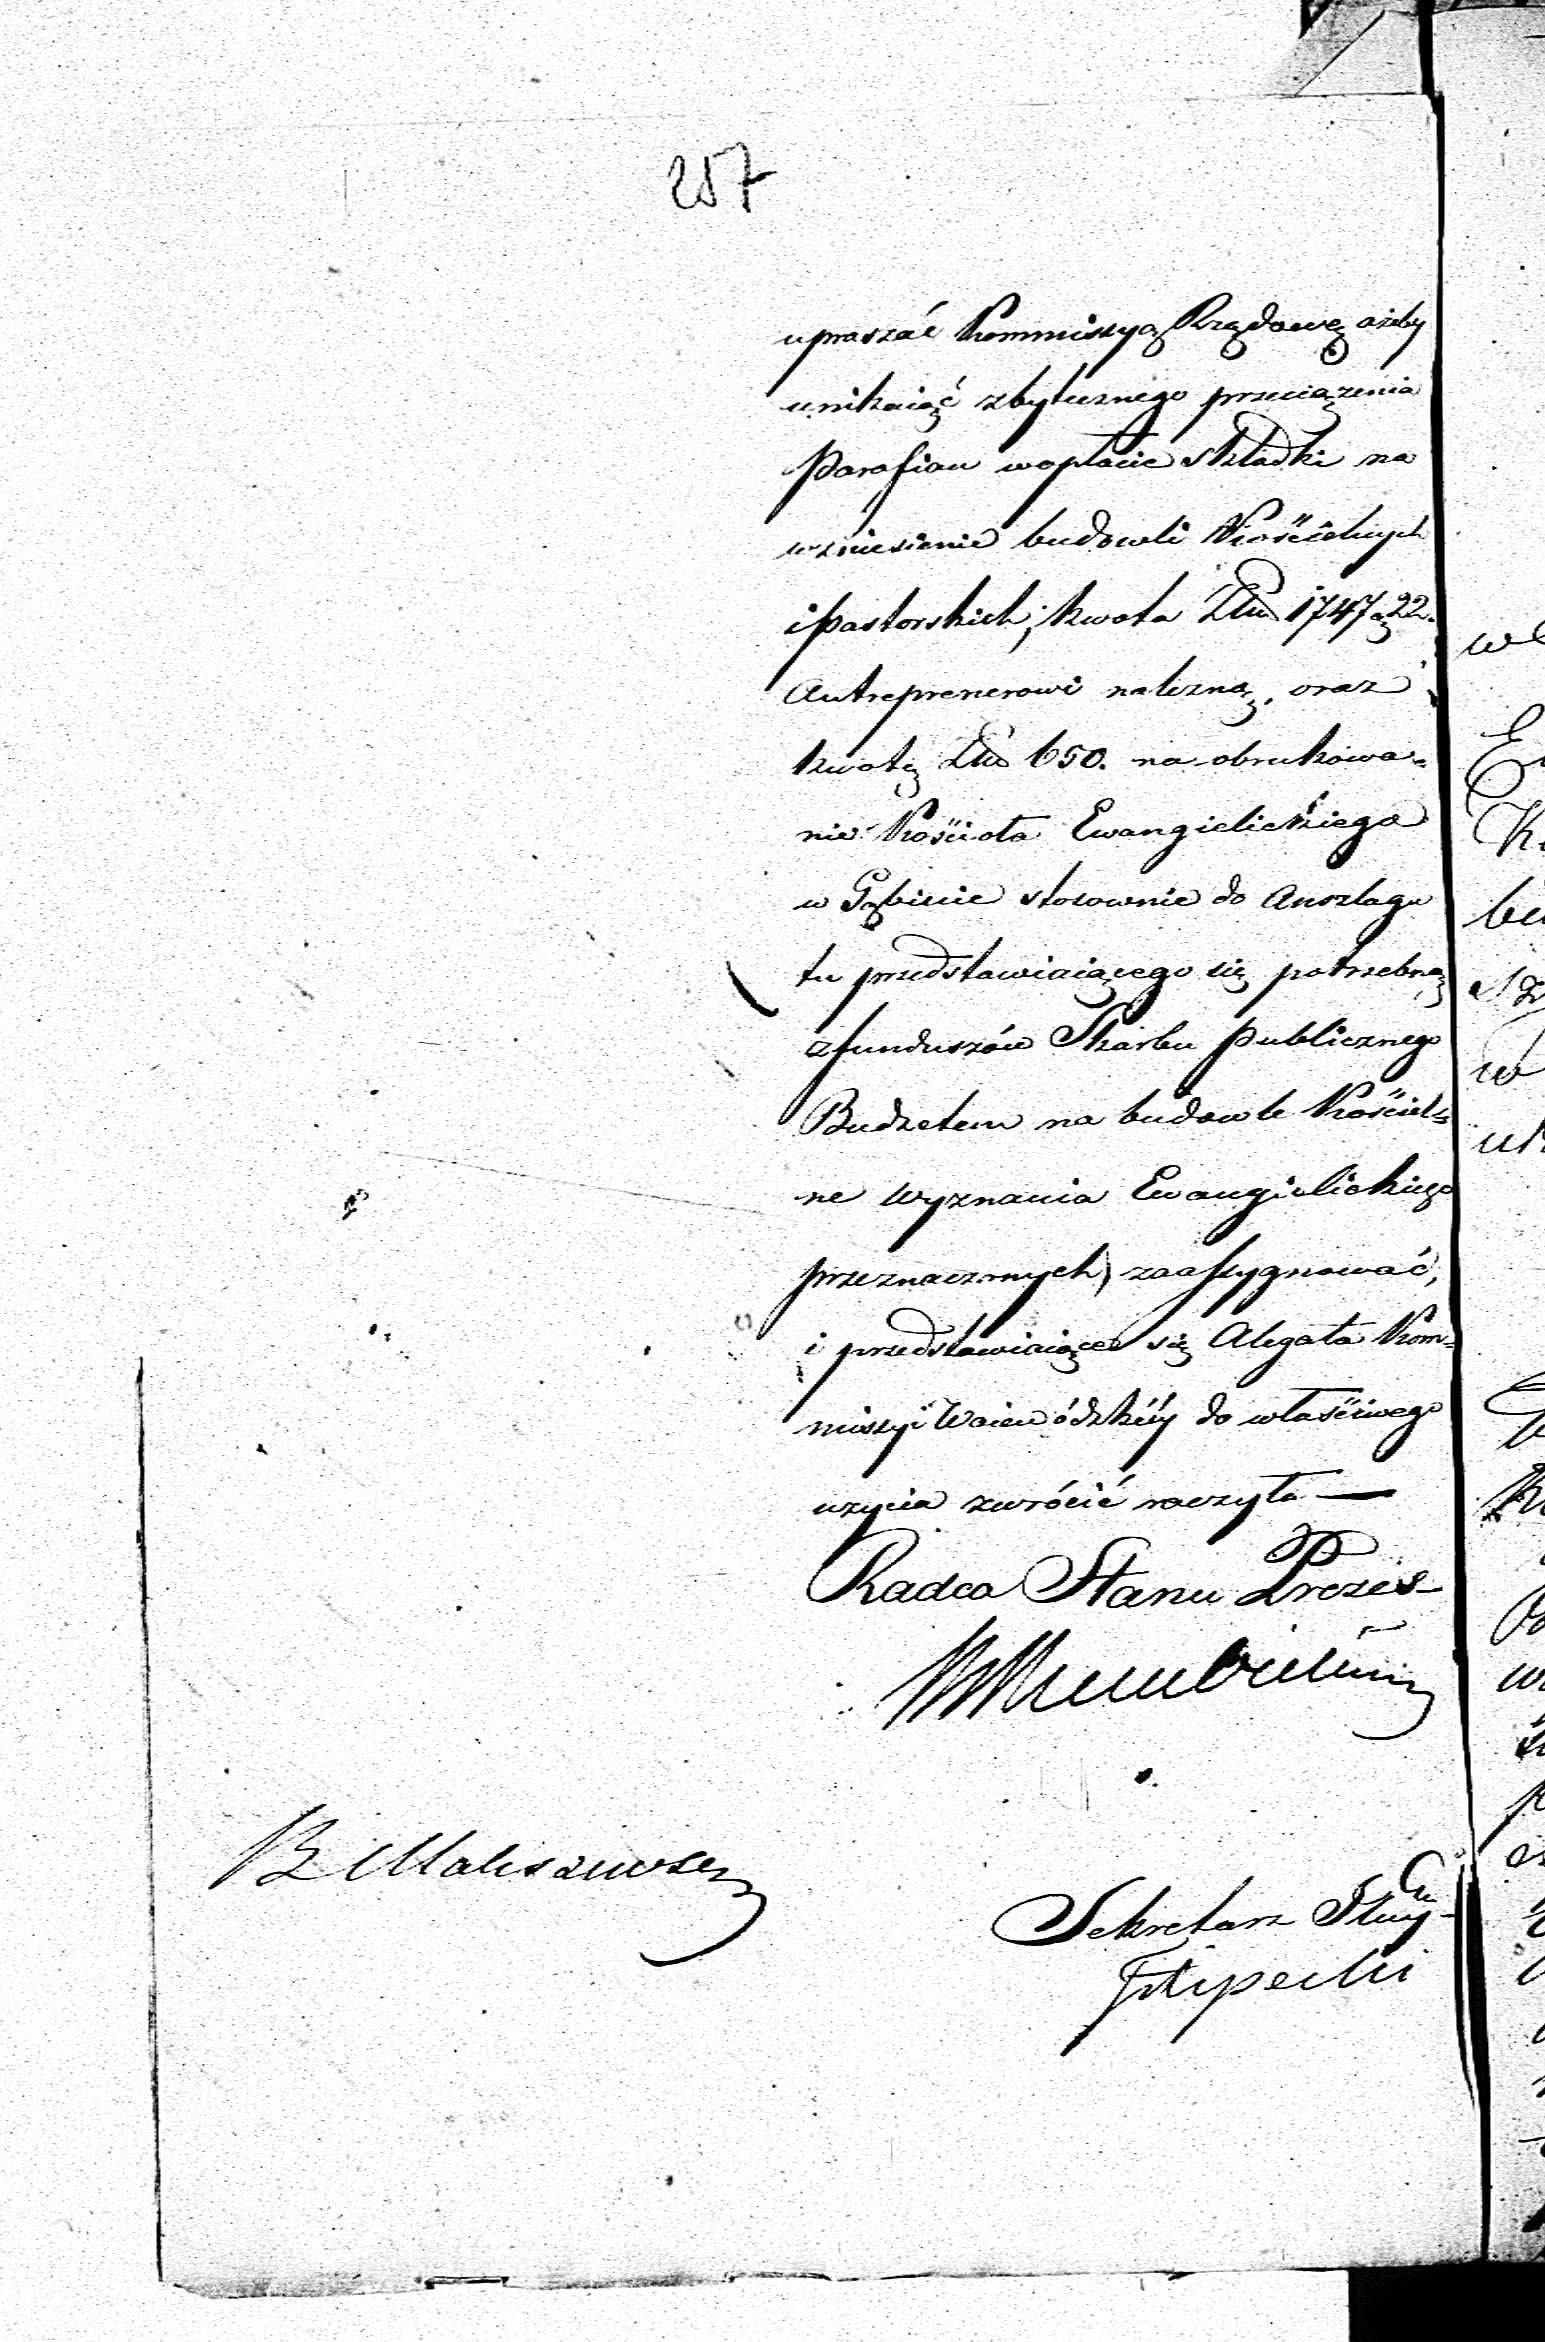 257
upraszać Kommissyą Rządową ażeby
unikaiąć zbytecznego przeciązenia
Parafian w opłacie składki na
wzniesienie budowli Kościelnych
i Pastorskich, kwota Złłp 1747 g 22.
Autreprenerowi należną, oraz
kwotę Złp 650. na obrukowa=
nie Kościoła Ewangielickiego
w Gąbinie stosownie do Anszlagu
tu przedstawiaiącego się potrzebną
z funduszów Skarbu Publicznego
Budżetem na budowle Kościel=
ne wyznania Ewangielickiego
przeznaczonych, zaassygnować,
i przedstawiaiące się Alegata Kom=
missyi Woiewódzkiéy do właściwego
użycia zwrócić raczyła —
Radca Stanu Prezes
B Maliszewski
Sekretarz Jlny
Filipecki